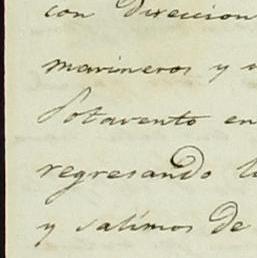 con Direccion
marineros y
Sotavento en
regresando
y salimos de